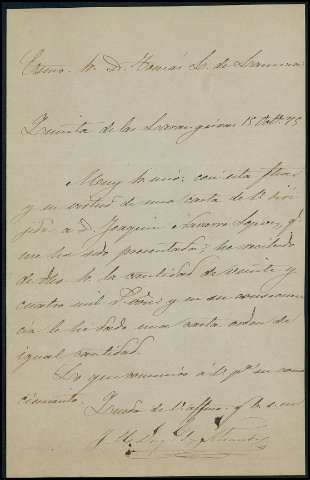 Excmo. Sr. D. Tomás
Quinta de los 15 Octe. 75
Muy Sr. mio: con esta fha
y en virtud de una carta de V. diri
jida a D. Joaquin Navarro q̃
me ha sido presentada, he recibido
de dho Sr. la cantidad de veinte y
cuatro mil y en su consecuen
cia le he dado una carta orden de
igual cantidad.
Lo que comunico á V. pa. su cono
cimiento.
Queda de V. affmo. q. b. s. m.